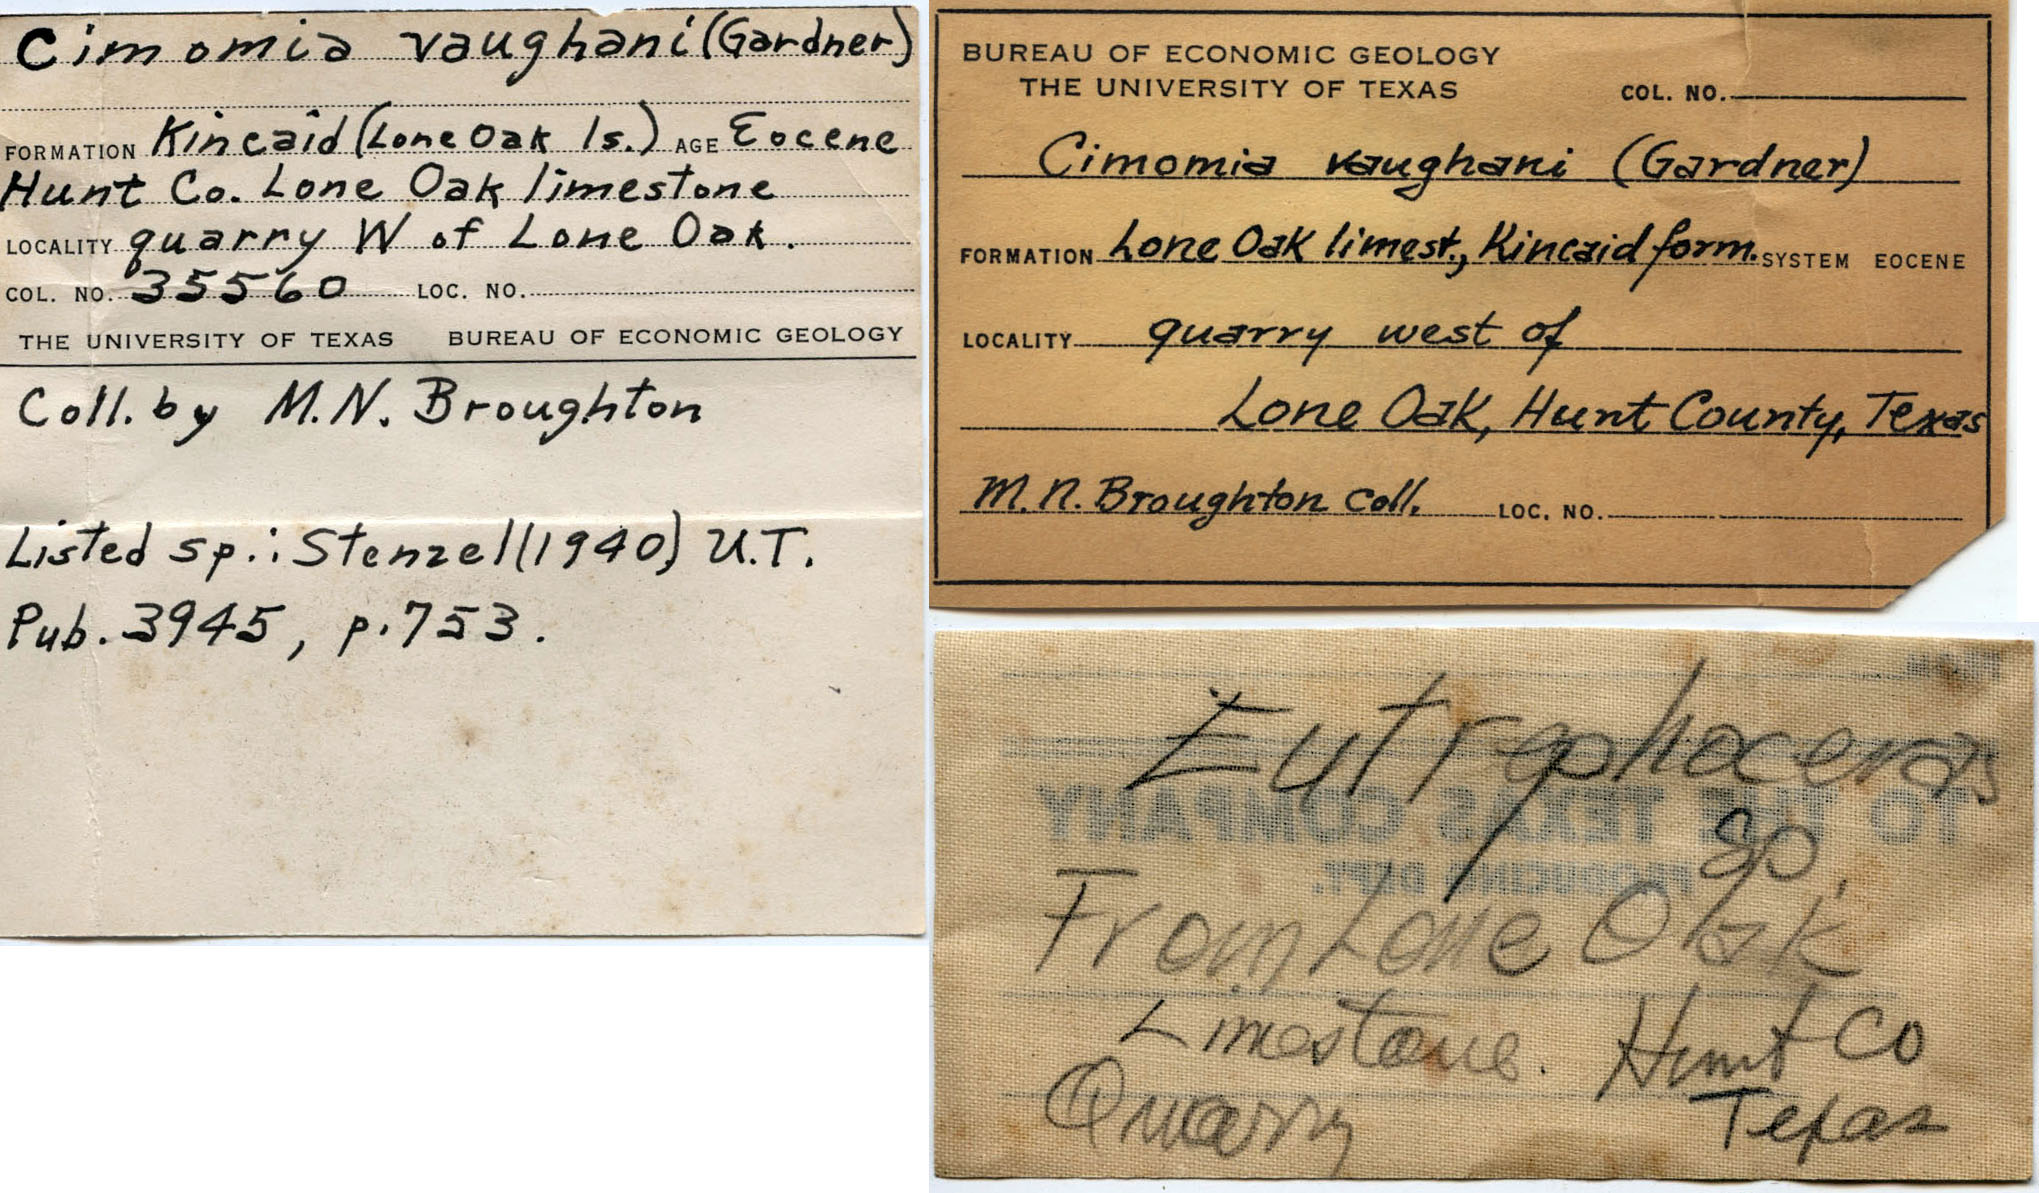 Cimomia vaughani (Gardner)
FORMATION Kincaid (Lone Oak ls.) AGE Eocene
Hunt Co. Lone Oak limestone
LOCALITY quarry W of Lone Oak.
COL. NO. 35560 LOC. NO.
THE UNIVERSITY OF TEXAS BUREAU OF ECONOMIC GEOLOGY
Coll. by M.N. Broughton
Listed sp.: Stenzel (1940) U.T.
Pub. 3945, p. 753.
BUREAU OF ECONOMIC GEOLOGY
THE UNIVERSITY OF TEXAS COL. NO.
Cimomia vaughani (Gardner)
FORMATION Lone Oak limest., Kincaid form. SYSTEM EOCENE
LOCALITY quarry west of
Lone Oak, Hunt County, Texas
M. N. Broughton coll. LOC. NO.
Eutrephoceras
sp.
TO THE TEXAS COMPANY
PRODUCING DEPT.
From Lone Oak
Limestone. Hunt Co
Quarry Texas